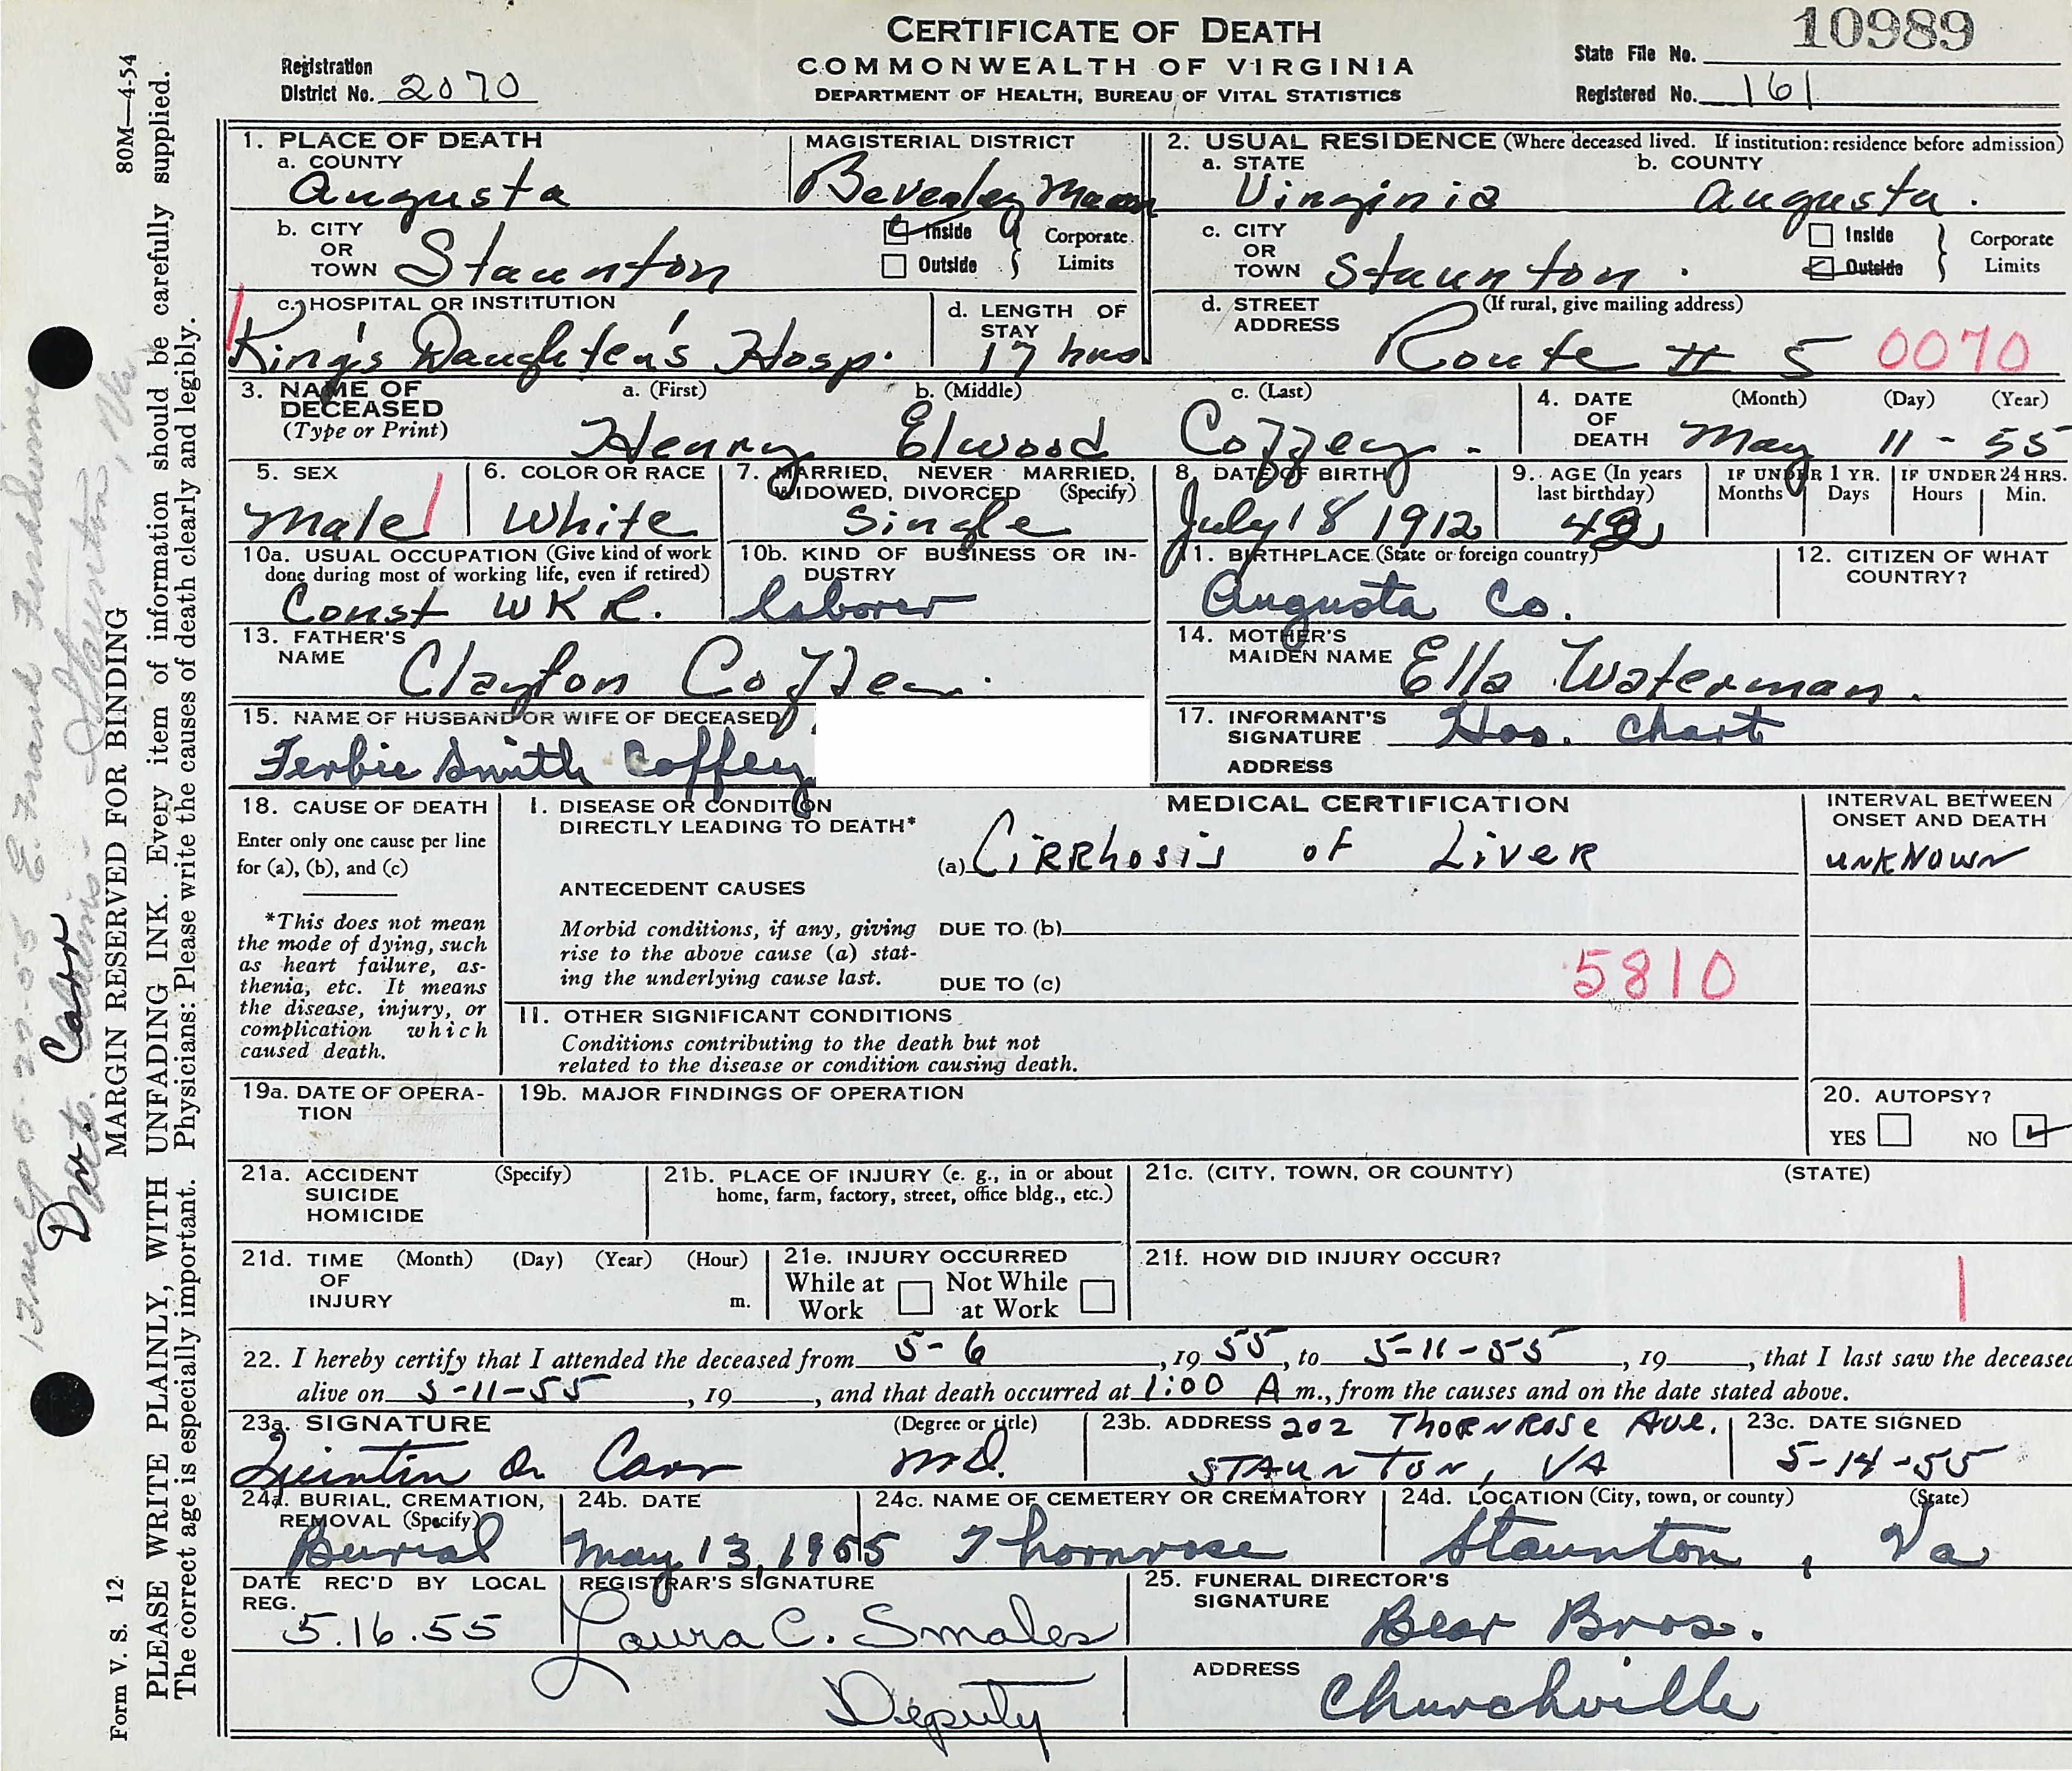 CERTIFICATE OF DEATH
COMMONWEALTH OF VIRGINIA
DEPARTMENT OF HEALTH, BUREAU OF VITAL STATISTICS
Registration District No. 2070
State File No. 10989
Registered No. 161
1. PLACE OF DEATH
a. COUNTY Augusta
MAGISTERIAL DISTRICT Beverley Manor
b. CITY OR TOWN Staunton
Inside Outside } Corporate Limits
c. HOSPITAL OR INSTITUTION King's Daughter's Hosp.
d. LENGTH OF STAY 17 hrs
2. USUAL RESIDENCE (Where deceased lived. If institution: residence before admission)
a. STATE Virginia
b. COUNTY Augusta.
c. CITY OR TOWN Staunton.
Inside Outside } Corporate Limits
d. STREET ADDRESS (If rural, give mailing address) Route # 5 0070
3. NAME OF DECEASED (Type or Print)
a. (First) Henry b. (Middle) Elwood c. (Last) Coffey.
4. DATE OF DEATH (Month) (Day) (Year) May 11 - 55
5. SEX Male
6. COLOR OR RACE White
7. MARRIED, NEVER MARRIED, WIDOWED, DIVORCED (Specify) Single
8. DATE OF BIRTH July 18 1912
9. AGE (In years last birthday)
IF UNDER 1 YR. Months Days
IF UNDER 24 HRS. Hours Min.
10a. USUAL OCCUPATION (Give kind of work done during most of working life, even if retired) Const WKR.
10b. KIND OF BUSINESS OR INDUSTRY laborer
11. BIRTHPLACE (State or foreign country) Augusta Co.
12. CITIZEN OF WHAT COUNTRY?
13. FATHER'S NAME Clayton Coffey.
14. MOTHER'S MAIDEN NAME Ella Waterman.
15. NAME OF HUSBAND OR WIFE OF DECEASED
Ferbie Smith Coffey
17. INFORMANT'S SIGNATURE Hos. Chart
ADDRESS
18. CAUSE OF DEATH
Enter only one cause per line for (a), (b), and (c)
*This does not mean the mode of dying, such as heart failure, asthenia, etc. It means the disease, injury, or complication which caused death.
MEDICAL CERTIFICATION
I. DISEASE OR CONDITION DIRECTLY LEADING TO DEATH*
(a) CIRRhosis of LiveR
INTERVAL BETWEEN ONSET AND DEATH
unkNowN
ANTECEDENT CAUSES
Morbid conditions, if any, giving rise to the above cause (a) stating the underlying cause last.
DUE TO (b)
DUE TO (c)
5810
II. OTHER SIGNIFICANT CONDITIONS
Conditions contributing to the death but not related to the disease or condition causing death.
19a. DATE OF OPERATION
19b. MAJOR FINDINGS OF OPERATION
20. AUTOPSY?
YES NO
21a. ACCIDENT SUICIDE HOMICIDE (Specify)
21b. PLACE OF INJURY (e. g., in or about home, farm, factory, street, office bldg., etc.)
21c. (CITY, TOWN, OR COUNTY) (STATE)
21d. TIME OF INJURY (Month) (Day) (Year) (Hour) m.
21e. INJURY OCCURRED While at Work Not While at Work
21f. HOW DID INJURY OCCUR?
22. I hereby certify that I attended the deceased from 5-6, 19 55, to 5-11-55, 19 , that I last saw the deceased
alive on 5-11-55, 19 , and that death occurred at 1:00 A m., from the causes and on the date stated above.
23a. SIGNATURE (Degree or title) Carr MD.
23b. ADDRESS 202 ThoRNRose Ave. STAUNTON, VA
23c. DATE SIGNED 5-14-55
24a. BURIAL, CREMATION, REMOVAL (Specify) Burial
24b. DATE May 13, 1955
24c. NAME OF CEMETERY OR CREMATORY Thornrose
24d. LOCATION (City, town, or county) (State) Staunton, Va
DATE REC'D BY LOCAL REG. 5.16.55
REGISTRAR'S SIGNATURE Laura C. Smales
Deputy
25. FUNERAL DIRECTOR'S SIGNATURE Bear Bros.
ADDRESS Churchville
Form V. S. 12
MARGIN RESERVED FOR BINDING
80M—4-54
PLEASE WRITE PLAINLY, WITH UNFADING INK. Every item of information should be carefully supplied.
The correct age is especially important. Physicians: Please write the causes of death clearly and legibly.
Dr. Carr
Staunton, Va